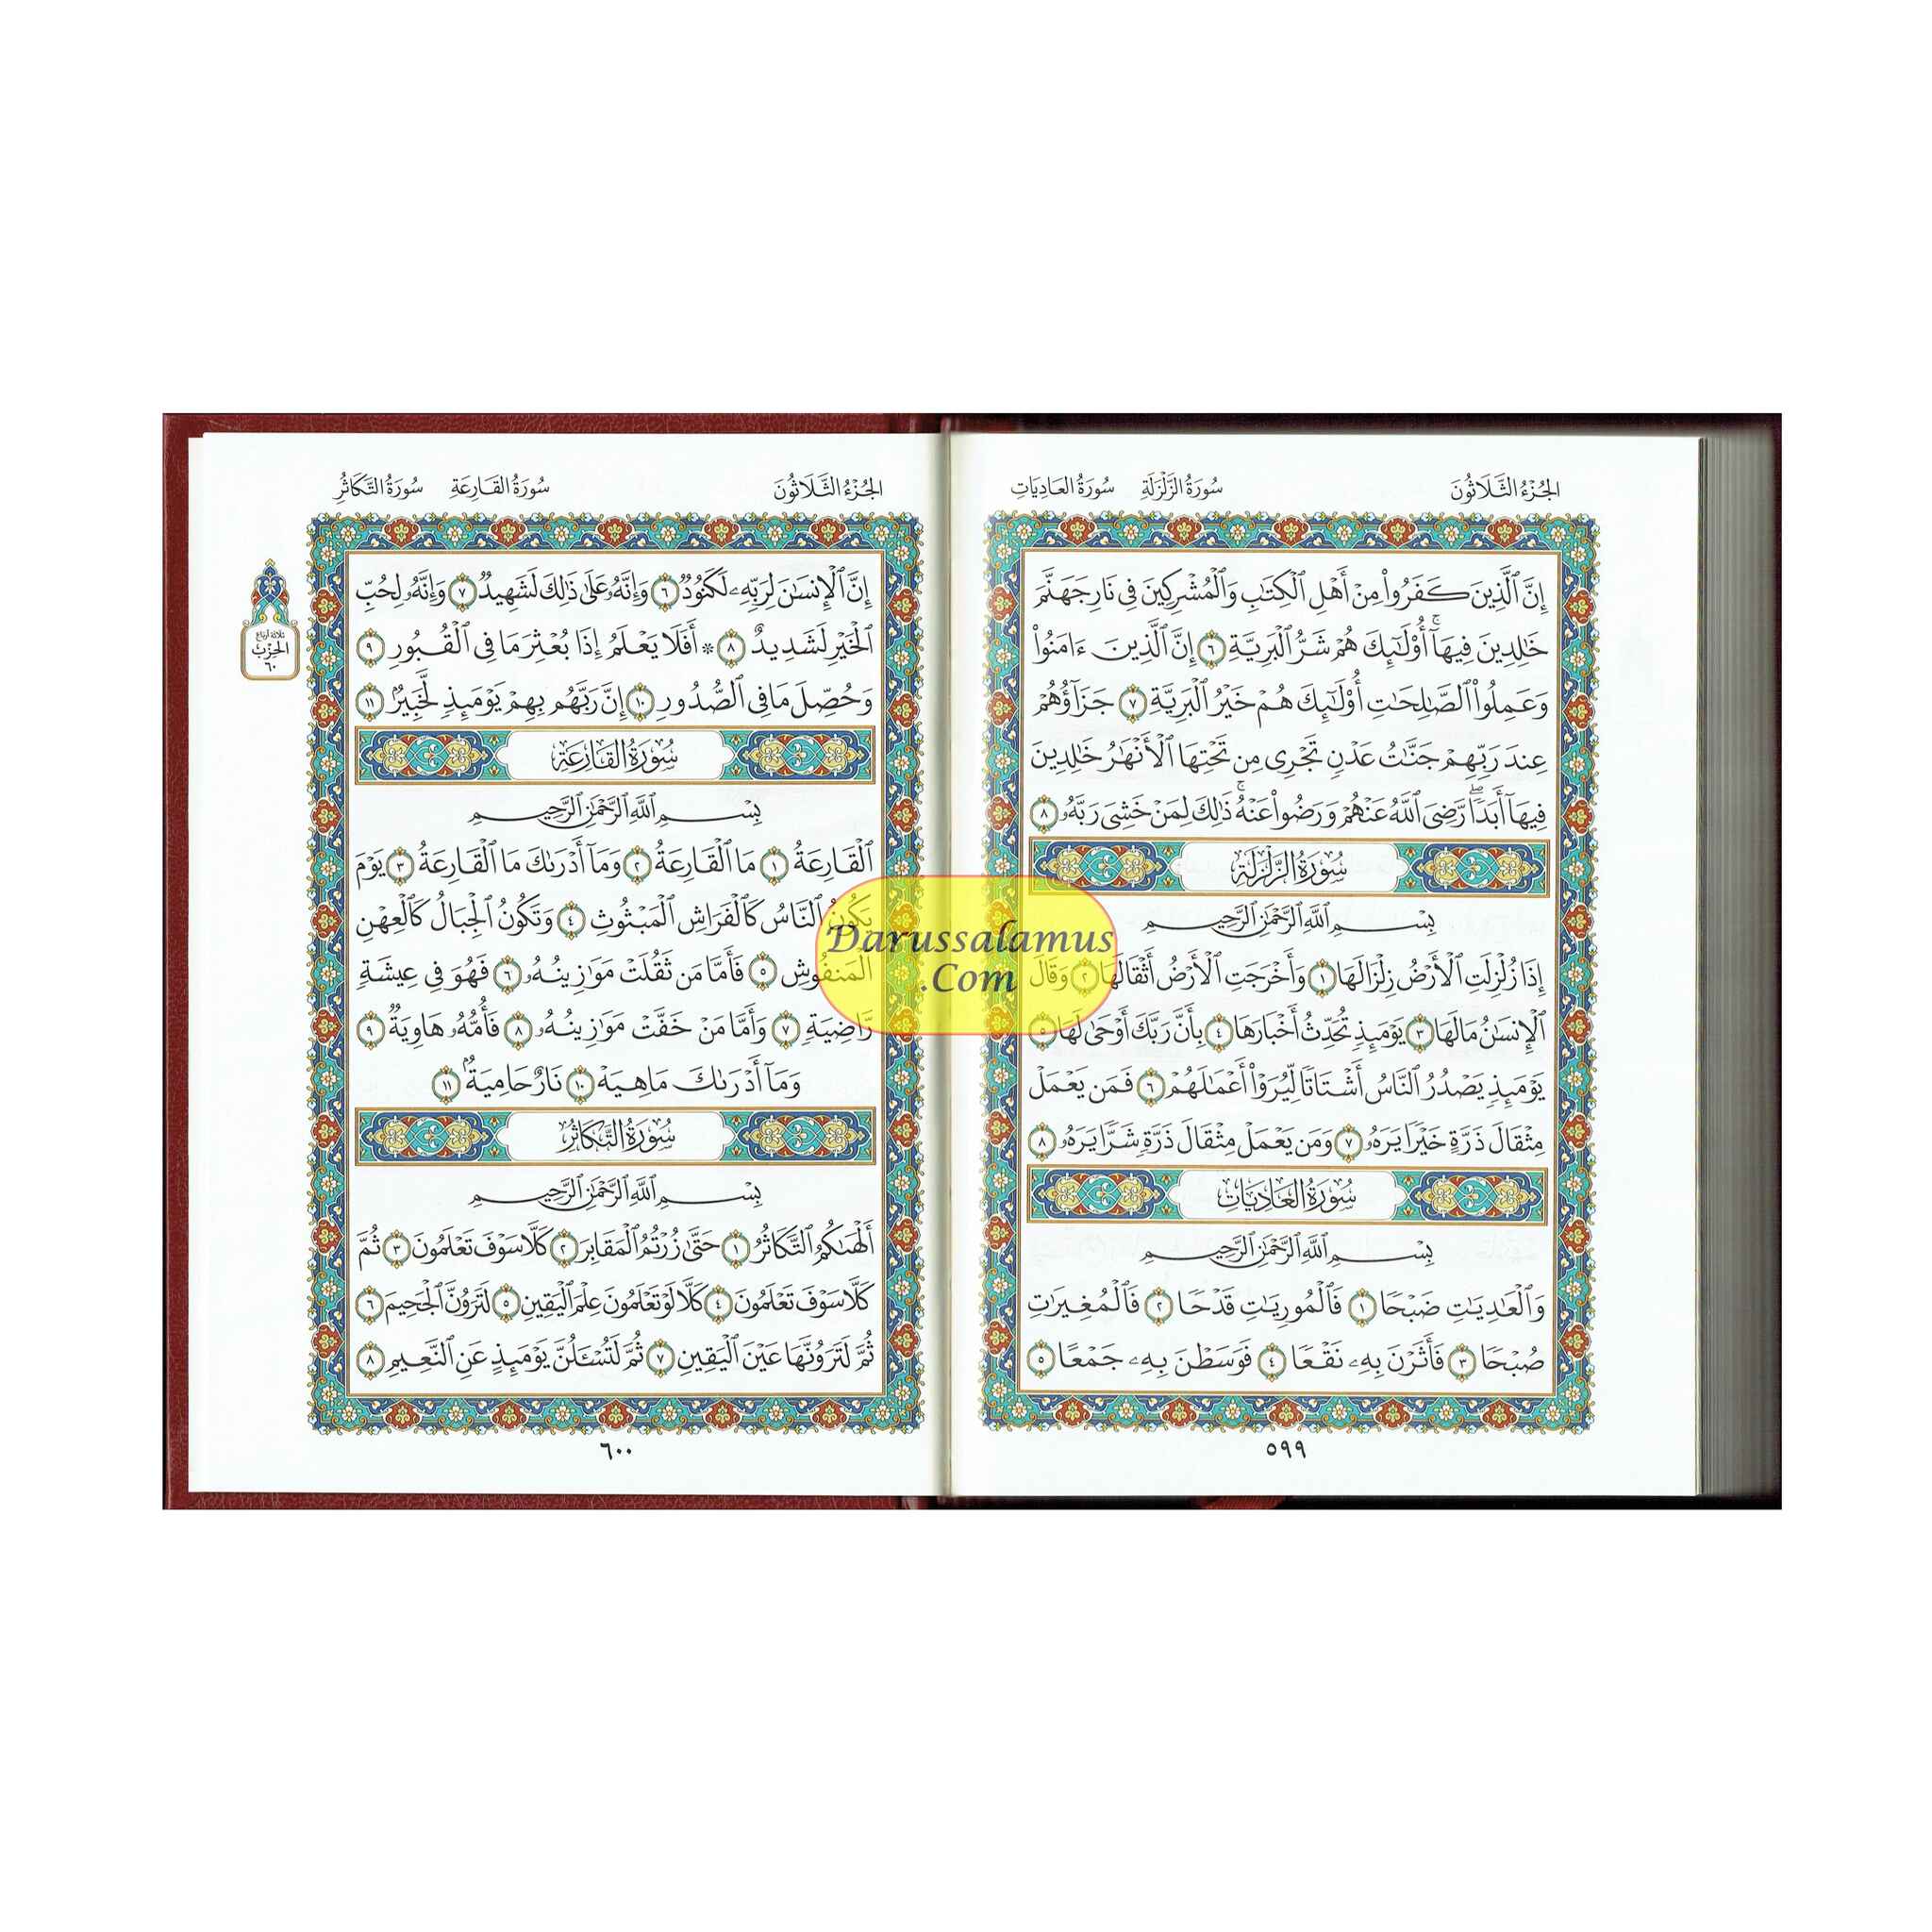 الجُزْءُ الثَّلَاثُونَ سُورَةُ الزَّلْزَلَةِ سُورَةُ العَادِيَاتِ
إِنَّ ٱلَّذِينَ كَفَرُواْ مِنْ أَهْلِ ٱلْكِتَٰبِ وَٱلْمُشْرِكِينَ فِي نَارِ جَهَنَّمَ
خَٰلِدِينَ فِيهَآۚ أُوْلَٰٓئِكَ هُمْ شَرُّ ٱلْبَرِيَّةِ ٦ إِنَّ ٱلَّذِينَ ءَامَنُواْ
وَعَمِلُواْ ٱلصَّٰلِحَٰتِ أُوْلَٰٓئِكَ هُمْ خَيْرُ ٱلْبَرِيَّةِ ٧ جَزَآؤُهُمْ
عِندَ رَبِّهِمْ جَنَّٰتُ عَدْنٍ تَجْرِي مِن تَحْتِهَا ٱلْأَنْهَٰرُ خَٰلِدِينَ
فِيهَآ أَبَدًاۖ رَّضِيَ ٱللَّهُ عَنْهُمْ وَرَضُواْ عَنْهُۚ ذَٰلِكَ لِمَنْ خَشِيَ رَبَّهُۥ ٨
سُورَةُ الزَّلْزَلَةِ
بِسْمِ ٱللَّهِ ٱلرَّحْمَٰنِ ٱلرَّحِيمِ
إِذَا زُلْزِلَتِ ٱلْأَرْضُ زِلْزَالَهَا ١ وَأَخْرَجَتِ ٱلْأَرْضُ أَثْقَالَهَا ٢ وَقَالَ
ٱلْإِنسَٰنُ مَا لَهَا ٣ يَوْمَئِذٍ تُحَدِّثُ أَخْبَارَهَا ٤ بِأَنَّ رَبَّكَ أَوْحَىٰ لَهَا ٥
يَوْمَئِذٍ يَصْدُرُ ٱلنَّاسُ أَشْتَاتًا لِّيُرَوْاْ أَعْمَٰلَهُمْ ٦ فَمَن يَعْمَلْ
مِثْقَالَ ذَرَّةٍ خَيْرًا يَرَهُۥ ٧ وَمَن يَعْمَلْ مِثْقَالَ ذَرَّةٍ شَرًّا يَرَهُۥ ٨
سُورَةُ العَادِيَاتِ
بِسْمِ ٱللَّهِ ٱلرَّحْمَٰنِ ٱلرَّحِيمِ
وَٱلْعَٰدِيَٰتِ ضَبْحًا ١ فَٱلْمُورِيَٰتِ قَدْحًا ٢ فَٱلْمُغِيرَٰتِ
صُبْحًا ٣ فَأَثَرْنَ بِهِۦ نَقْعًا ٤ فَوَسَطْنَ بِهِۦ جَمْعًا ٥
٥٩٩
الجُزْءُ الثَّلَاثُونَ سُورَةُ القَارِعَةِ سُورَةُ التَّكَاثُرِ
إِنَّ ٱلْإِنسَٰنَ لِرَبِّهِۦ لَكَنُودٌ ٦ وَإِنَّهُۥ عَلَىٰ ذَٰلِكَ لَشَهِيدٌ ٧ وَإِنَّهُۥ لِحُبِّ
ٱلْخَيْرِ لَشَدِيدٌ ٨ * أَفَلَا يَعْلَمُ إِذَا بُعْثِرَ مَا فِي ٱلْقُبُورِ ٩
ثلاثة أرباع
الحِزْب
٦٠
وَحُصِّلَ مَا فِي ٱلصُّدُورِ ١٠ إِنَّ رَبَّهُم بِهِمْ يَوْمَئِذٍ لَّخَبِيرٌۢ ١١
سُورَةُ القَارِعَةِ
بِسْمِ ٱللَّهِ ٱلرَّحْمَٰنِ ٱلرَّحِيمِ
ٱلْقَارِعَةُ ١ مَا ٱلْقَارِعَةُ ٢ وَمَآ أَدْرَىٰكَ مَا ٱلْقَارِعَةُ ٣ يَوْمَ
يَكُونُ ٱلنَّاسُ كَٱلْفَرَاشِ ٱلْمَبْثُوثِ ٤ وَتَكُونُ ٱلْجِبَالُ كَٱلْعِهْنِ
ٱلْمَنفُوشِ ٥ فَأَمَّا مَن ثَقُلَتْ مَوَٰزِينُهُۥ ٦ فَهُوَ فِي عِيشَةٍ
رَّاضِيَةٍ ٧ وَأَمَّا مَنْ خَفَّتْ مَوَٰزِينُهُۥ ٨ فَأُمُّهُۥ هَاوِيَةٌ ٩
وَمَآ أَدْرَىٰكَ مَا هِيَهْ ١٠ نَارٌ حَامِيَةٌۢ ١١
سُورَةُ التَّكَاثُرِ
بِسْمِ ٱللَّهِ ٱلرَّحْمَٰنِ ٱلرَّحِيمِ
أَلْهَىٰكُمُ ٱلتَّكَاثُرُ ١ حَتَّىٰ زُرْتُمُ ٱلْمَقَابِرَ ٢ كَلَّا سَوْفَ تَعْلَمُونَ ٣ ثُمَّ
كَلَّا سَوْفَ تَعْلَمُونَ ٤ كَلَّا لَوْ تَعْلَمُونَ عِلْمَ ٱلْيَقِينِ ٥ لَتَرَوُنَّ ٱلْجَحِيمَ ٦
ثُمَّ لَتَرَوُنَّهَا عَيْنَ ٱلْيَقِينِ ٧ ثُمَّ لَتُسْـَٔلُنَّ يَوْمَئِذٍ عَنِ ٱلنَّعِيمِ ٨
٦٠٠
Darussalamus
.Com